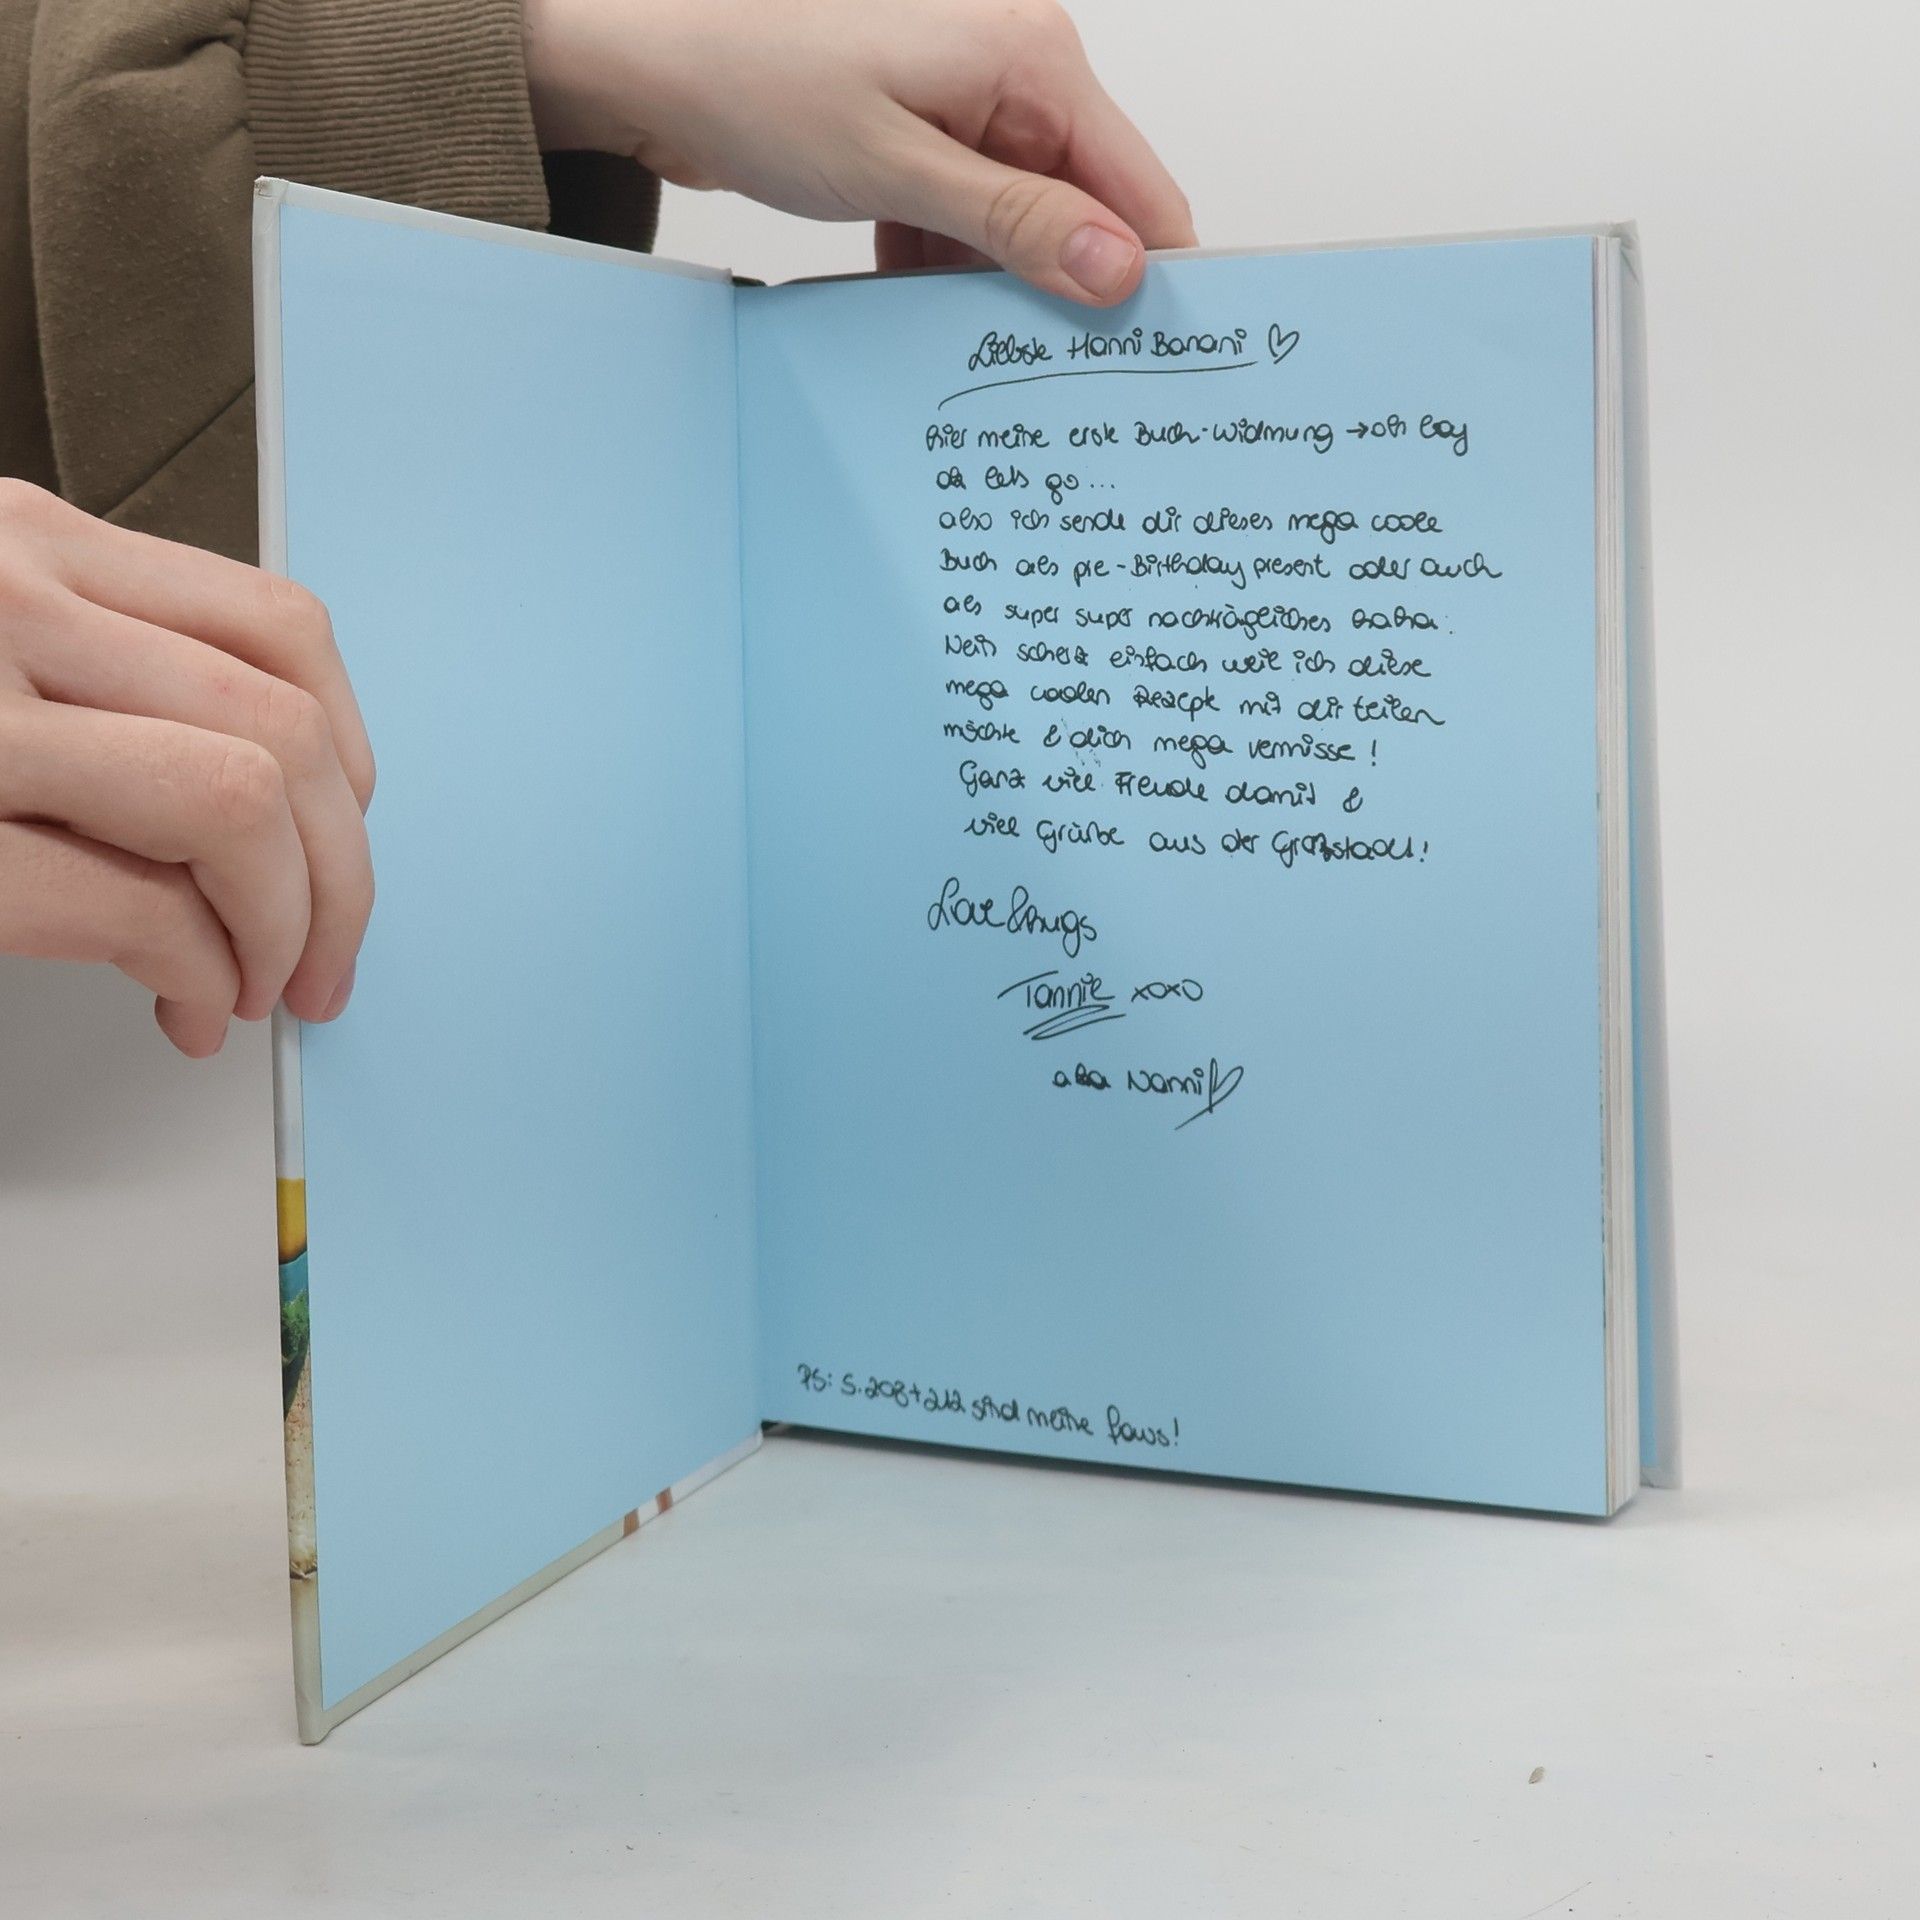 Liebste Hanni Banani ♡
hier meine erste Buch-Widmung → oh boy
ok lets go...
also ich sende dir dieses mega coole
Buch als pre-Birthday present oder auch
als super super nachträgliches haha.
Nein scherz einfach weil ich diese
mega coolen Rezepte mit dir teilen
möchte & dich mega vermisse!
Ganz viel Freude damit &
viel Grüße aus der Großstadt!
Love & hugs
Tannie xoxo
aka Nanni ♡
PS: S. 208 + 212 sind meine favs!